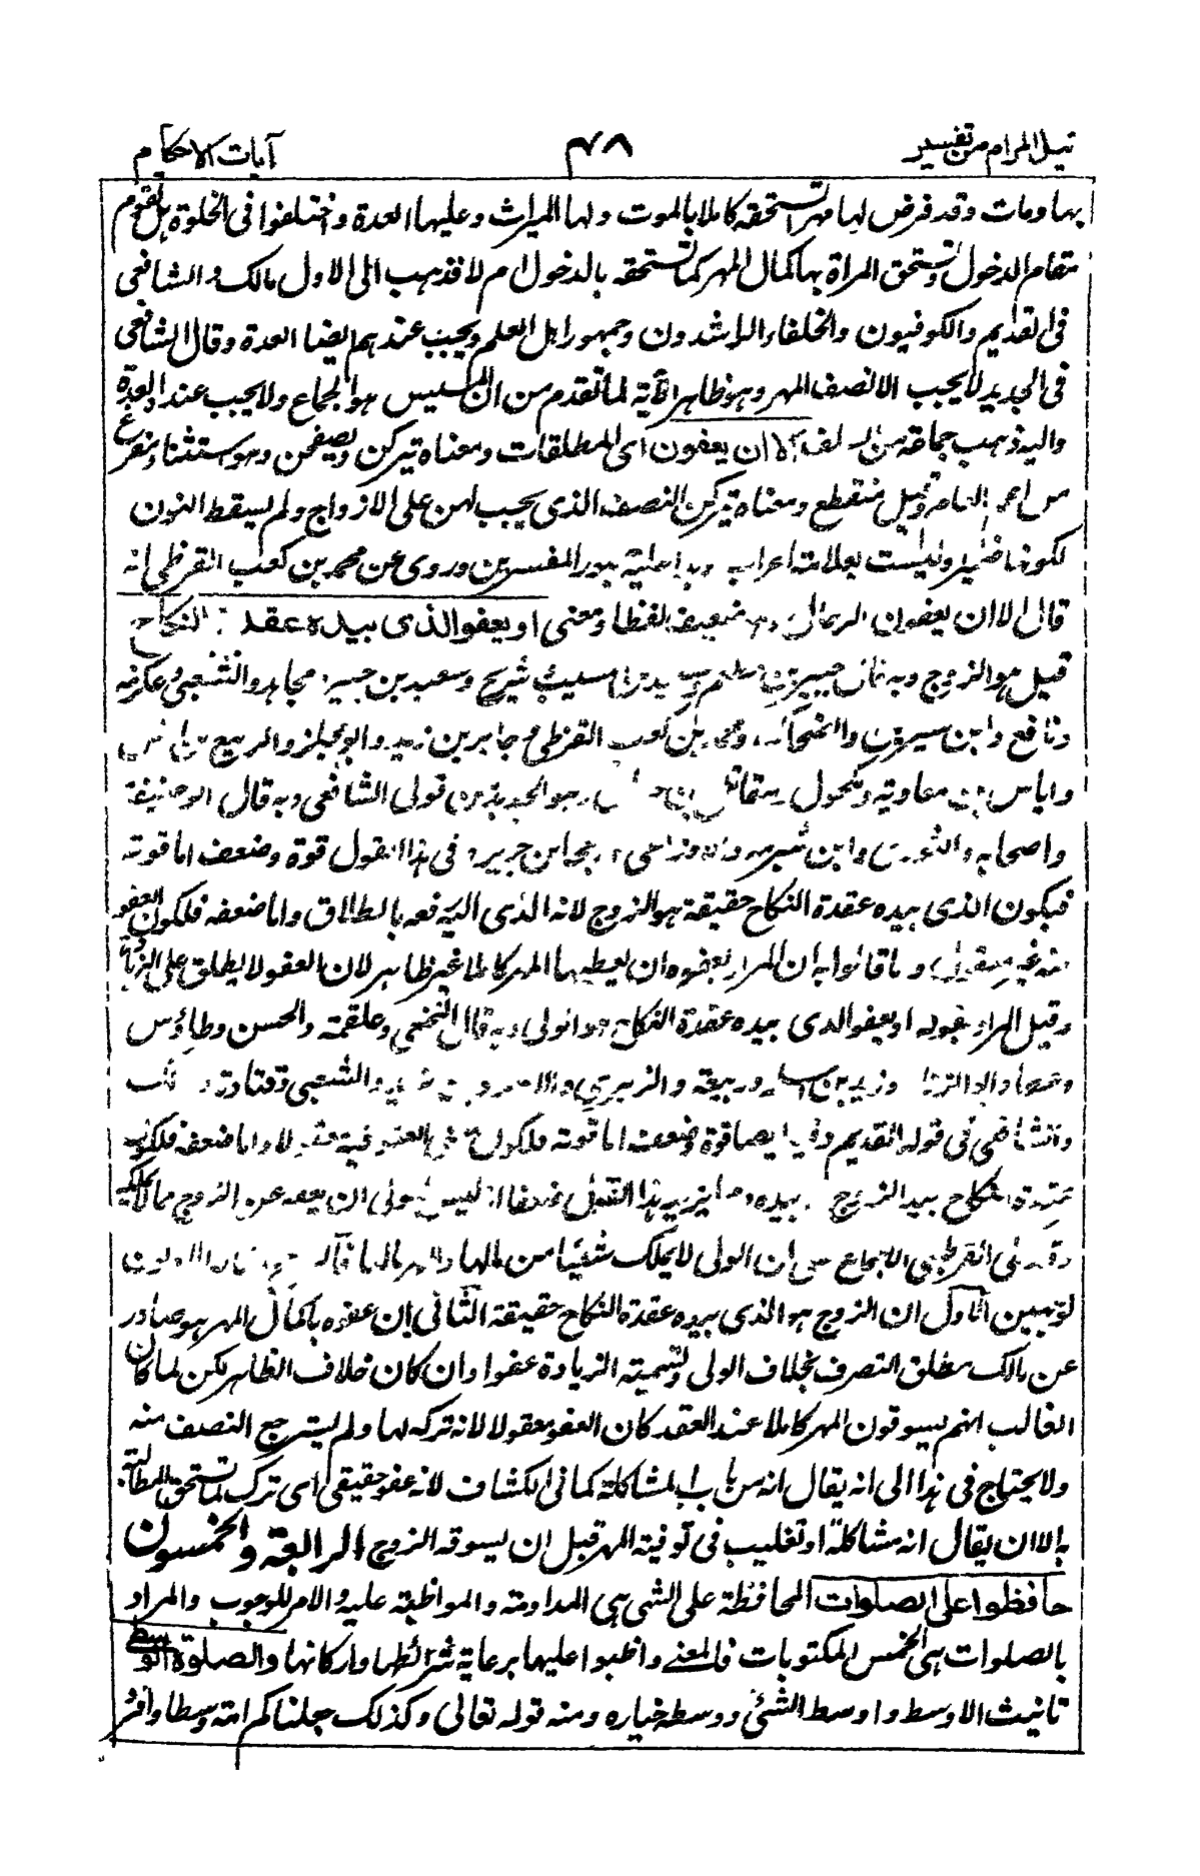 نيل المرام من تفسير
٤٧٨
آيات الاحكام
بها ومات وقد فرض لها مهرا تستحقه كاملا بالموت ولها الميراث وعليها العدة واختلفوا في الخلوة هل تقوم
مقام الدخول وتستحق المرأة بها كمال المهر كما تستحقه بالدخول ام لا فذهب الى الاول مالك والشافعي
في القديم والكوفيون والخلفاء الراشدون وجمهور اهل العلم ويجب عندهم ايضا العدة وقال الشافعي
في الجديد لا يجب الا نصف المهر وهو ظاهر الآية لما تقدم من ان المسيس هو الجماع ولا يجب عنده العدة
واليه ذهب جماعة من السلف الا ان يعفون اى المطلقات ومعناه يتركن ويصفحن وهو استثناء مفرغ
من اعم العام وقيل منقطع ومعناه يتركن النصف الذي يجب لهن على الازواج ولم يسقط النون
لكونها ضمير وليست بعلامة اعراب جمهور المفسرين وروى عن محمد بن كعب القرظي انه
قال الا ان يعفون الرجال وهو ضعيف لفظا ومعنى او يعفو الذى بيده عقدة النكاح
قيل هو الزوج وبه قال جبير بن مطعم وسعيد بن المسيب وشريح وسعيد بن جبير ومجاهد والشعبي وعكرمة
ونافع وابن سيرين والضحاك ومحمد بن كعب القرظي وجابر بن زيد وابو مجلز والربيع بن انس
واياس بن معاوية ومكحول ومقاتل بن وهو الجديد من قولى الشافعي وبه قال ابو حنيفة
واصحابه والثورى وابن شبرمه والاوزاعي ابن جرير وفي هذا القول قوة وضعف اما قوته
فيكون الذى بيده عقدة النكاح حقيقة هو الزوج لانه الذى اليه رفعه بالطلاق واما ضعفه فلكون العفو
منه غير معقول وما قالوا به ان المراد بعفوه ان يعطيها المهر كاملا غير ظاهر لان العفو لا يطلق على الزيادة
وقيل المراد بقوله او يعفو الذى بيده عقدة النكاح هو الولى وبه قال النخعي وعلقمة والحسن وطاؤس
وعطاء وابو الزناد وزيد بن اسلم وربيعة والزهري والشعبي وقتادة ومالك
والشافعي في قوله القديم وفيه ايضا قوة وضعف اما قوته فلكون معنى العفو فيه معقولا واما ضعفه فلكون
عقدة النكاح بيد الزوج لا بيده ومما يزيد هذا القول ضعفا انه ليس للولى ان يعفو عن الزوج مما لا يملكه
وقد حكى القرطبي الاجماع على ان الولى لا يملك شيئا من مالها والمهر مالها
لوجهين الاول ان الزوج هو الذى بيده عقدة النكاح حقيقة الثاني ان عفوه باكمال المهر هو صادر
عن مالك مطلق التصرف بخلاف الولى وتسمية الزيادة عفوا وان كان خلاف الظاهر لكن لما كان
الغالب انهم يسوقون المهر كاملا عند العقد كان العفو معقولا لانه تركه لها ولم يسترجع النصف منه
ولا يحتاج في هذا الى انه يقال انه من باب المشاكلة كما في الكشاف لانه عفو حقيقي اى ترك ما تستحق المطالبة
به الا ان يقال انه مشاكلة او تغليب في توفية المهر قبل ان يسوقه الزوج الرابعة والخمسون
حافظوا على الصلوات المحافظة على الشي هي المداومة والمواظبة عليه والامر للوجوب والمراد
بالصلوات هي الخمس المكتوبات فالمعنى واظبوا عليها برعاية شرائطها واركانها والصلوة الوسطى
تانيث الاوسط واوسط الشئ ووسطه خياره ومنه قوله تعالى وكذلك جعلناكم امة وسطا